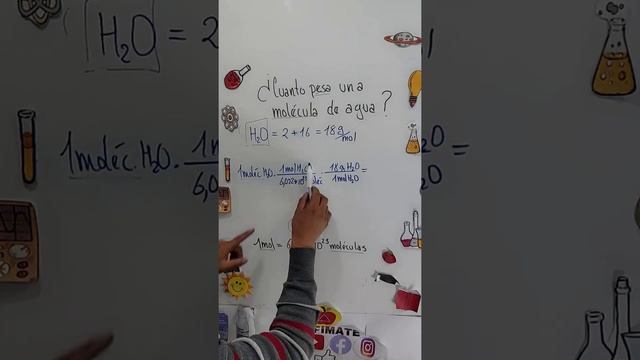 ¿Cuanto pesa una
molécula de agua?
H₂O = 2 + 16 = 18 g/mol
1 moléc. H₂O · 1 mol H₂O / 6,022*10²³ moléc · 18 g H₂O / 1 mol H₂O =
1 mol = 6 10²³ moléculas
FIMATE